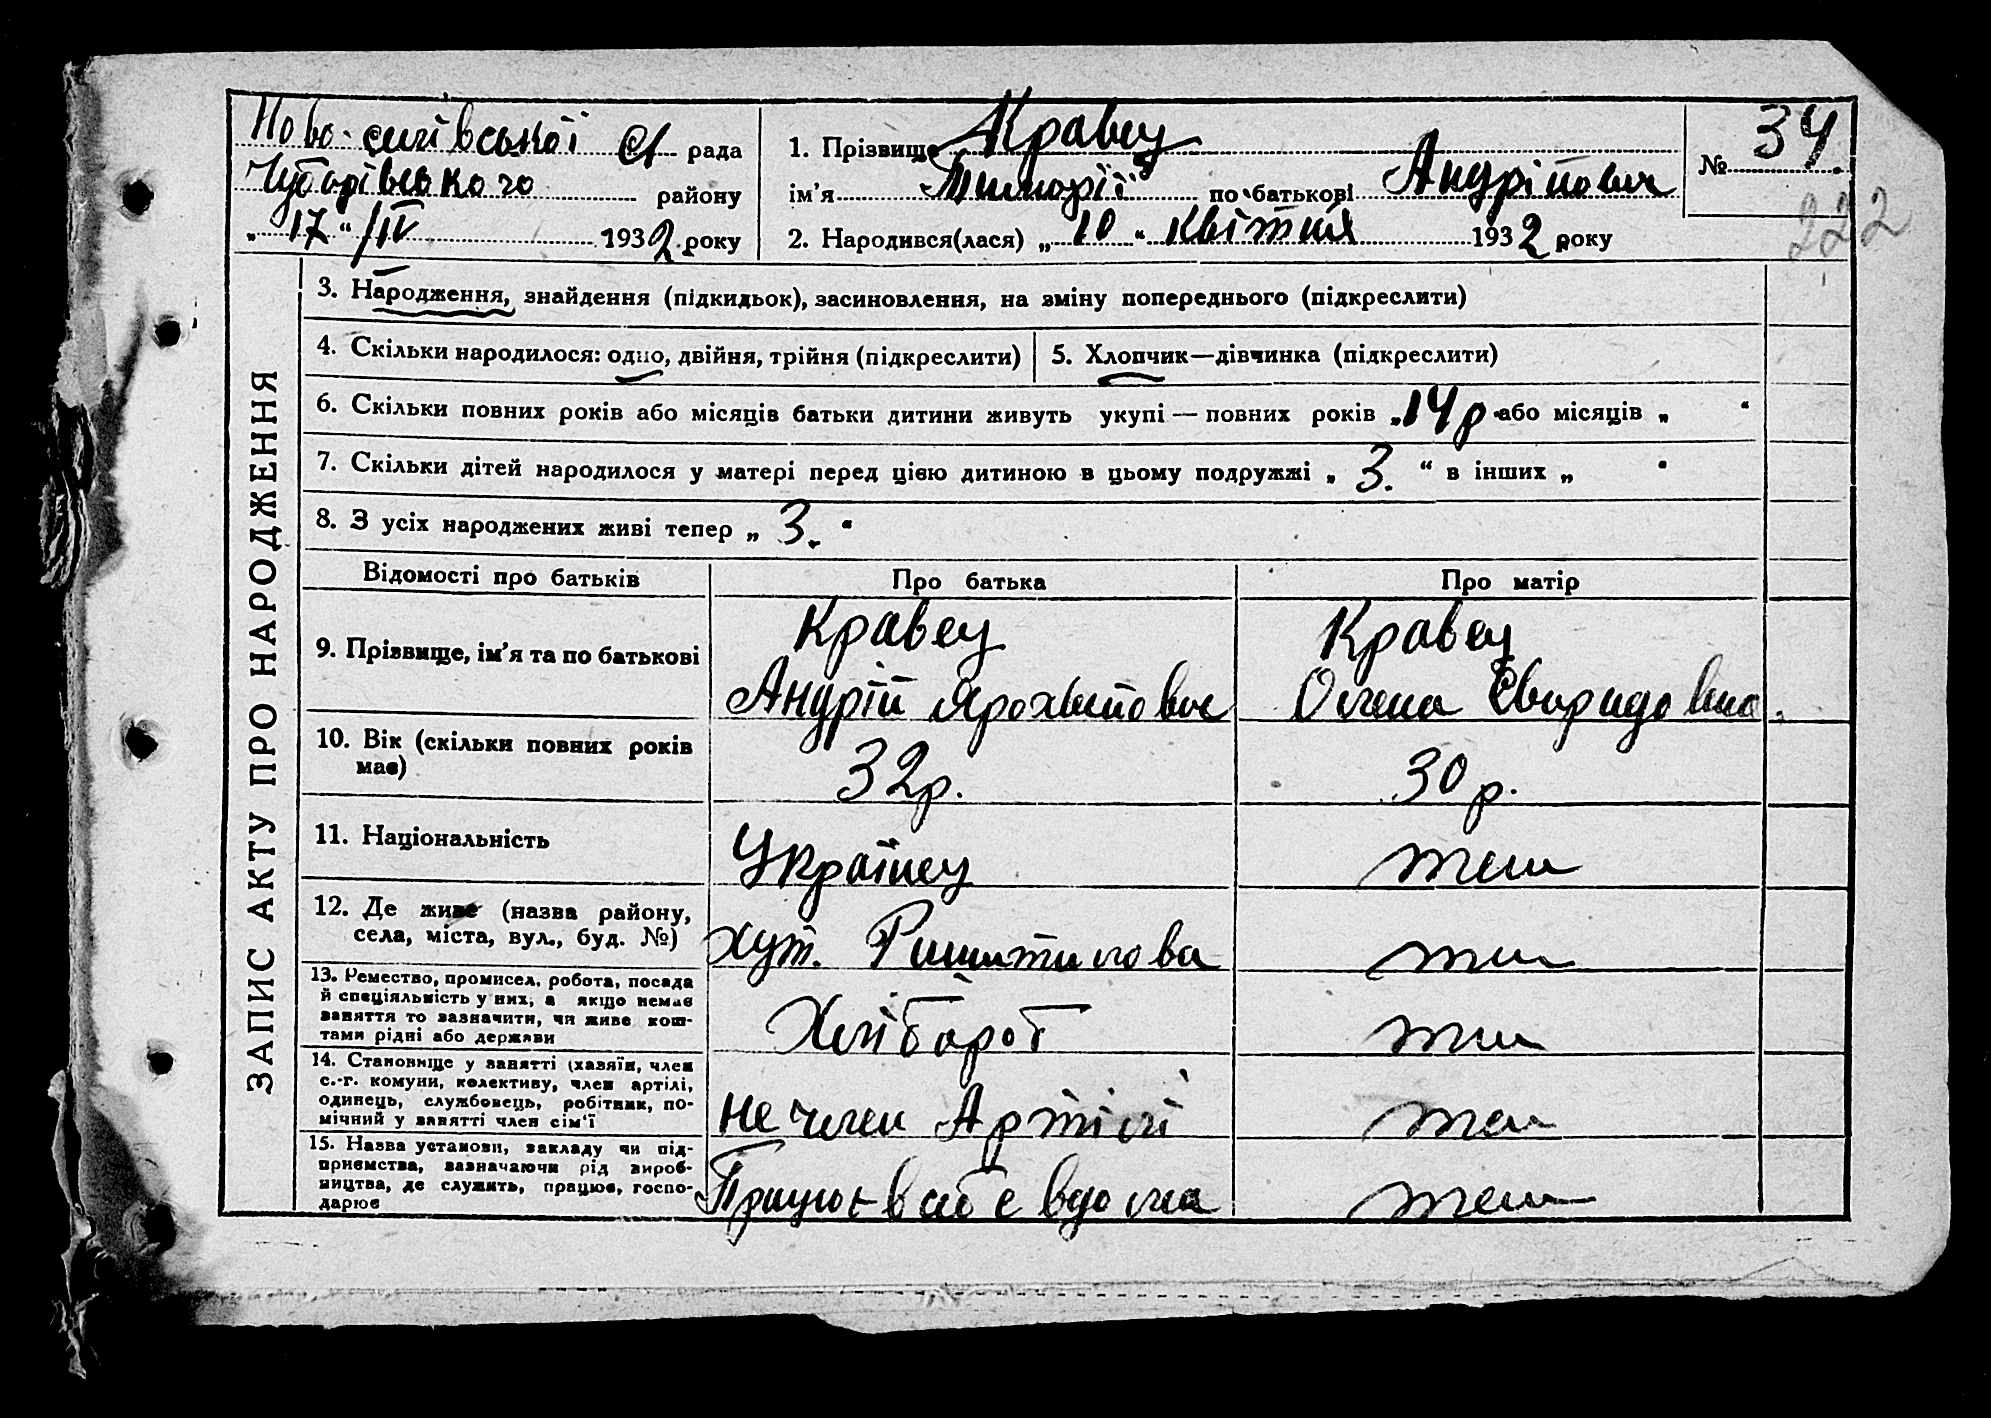 Ново-
с/рада
Чубарівського району
„17“/IV 1932 року
1. Прізвище Кравец
ім’я по батькові Андрійович
2. Народився(лася) „10“ Квітня 1932 року
№ 34.
222
ЗАПИС АКТУ ПРО НАРОДЖЕННЯ
3. Народження, знайдення (підкидьок), засиновлення, на зміну попереднього (підкреслити)
4. Скільки народилося: одно, двійня, трійня (підкреслити)
5. Хлопчик—дівчинка (підкреслити)
6. Скільки повних років або місяців батьки дитини живуть укупі — повних років „14 р або місяців „ “
7. Скільки дітей народилося у матері перед цією дитиною в цьому подружжі „ 3. “ в інших „ “
8. З усіх народжених живі тепер „ 3. “
Відомості про батьків
Про батька
Про матір
9. Прізвище, ім’я та по батькові
Кравец
Андрій
Кравец
Олена Свиридовна.
10. Вік (скільки повних років
має)
32р.
30р.
11. Національність
Українец
теж
12. Де живе (назва району,
села, міста, вул., буд. №)
хут.
теж
13. Ремество, промисел, робота, посада
й спеціяльність у них, а якщо немає
заняття то зазначити, чи живе кош-
тами рідні або держави
Хлібороб
теж
14. Становище у занятті (хазяїн, член
с.-г. комуни, колективу, член артілі,
одинець, службовець, робітник, по-
мічний у занятті член сім’ї
не член Артілі
теж
15. Назва установи, закладу чи під-
приємства, зазначаючи рід вироб-
ництва, де служить, працює, госпо-
дарює
Працює в себе вдома
теж